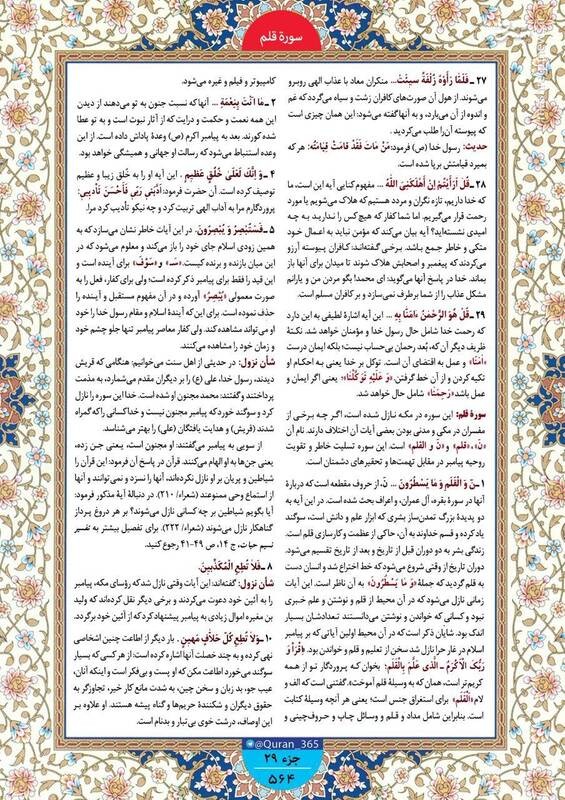 سورهٔ قلم
۲۷ ـ فَلَمَّا رَأَوْهُ زُلْفَةً سِیئَتْ... منکران معاد با عذاب الهی روبرو
می‌شوند. از هول آن صورت‌های کافران زشت و سیاه می‌گردد که غم
و اندوه از آن می‌بارد، و به آنها گفته می‌شود: این همان چیزی است
که پیوسته آن‌را طلب می‌کردید.
حدیث: رسول خدا (ص) فرمود: مَنْ مَاتَ فَقَدْ قامَتْ قِیَامَتُهُ: هر که
بمیرد قیامتش برپا شده است.
۲۸ ـ قُلْ اَرَأَیْتُمْ اِنْ أَهْلَکَنِیَ اللّٰهُ ... مفهوم کنایی آیه این است، ما
که خدا داریم، تازه نگران و مردد هستیم که هلاک می‌شویم یا مورد
رحمت قرار می‌گیریم. اما شما کفار که هیچ‌کس را ندارید به چه
امیدی نشسته‌اید؟ آیه بیان می‌کند که مؤمن نباید به اعمال خود
متکی و خاطر جمع باشد. برخی گفته‌اند: کافران پیوسته آرزو
می‌کردند که پیغمبر و اصحابش هلاک شوند تا میدان برای آنها باز
بماند. خدا در پاسخ آنها می‌گوید: ای محمد! بگو مردن من و یارانم
مشکل عذاب را از شما برطرف نمی‌سازد و بر کافران مسلم است.
۲۹ ـ قُلْ هُوَ الرَّحْمٰنُ اٰمَنَّا بِهِ ... این آیه اشارهٔ لطیفی به این دارد
که رحمت خدا شامل حال رسول خدا و مؤمنان خواهد شد. نکتهٔ
ظریف دیگر آن که، بُعد رحمان بی‌حساب نیست؛ بلکه ایمان درست
«اٰمَنَّا» و عمل به اقتضای آن است. توکل بر خدا یعنی به احکام او
تکیه کردن و از آن خط گرفتن «وَ عَلَیْهِ تَوَکَّلْنَا»؛ یعنی اگر ایمان و
عمل باشد «رَحِمَنَا» شامل حال خواهد شد.
سورهٔ قلم: این سوره در مکه نازل شده است، اگر چه برخی از
مفسران در مکی و مدنی بودن بعضی آیات آن اختلاف دارند. نام آن
«نٓ»، «قلم» و «نٓ و القلم» است. این سوره تسلیت خاطر و تقویت
روحیه پیامبر در مقابل تهمت‌ها و تحقیرهای دشمنان است.
۱ ـ نٓ وَ الْقَلَمِ وَ مَا یَسْطُرُونَ ـ نٓ، از حروف مقطعه است که دربارهٔ
آنها در سورهٔ بقره، آل عمران، و اعراف بحث شده است. در این آیه به
دو پدیدهٔ بزرگ تمدن‌ساز بشری که ابزار علم و دانش است، سوگند
یاد کرده و قسم خداوند به آن، حاکی از عظمت و کارسازی قلم است.
زندگی بشر به دو دوران قبل از تاریخ و بعد از تاریخ تقسیم می‌شود.
دوران تاریخ از وقتی شروع می‌شود که خط اختراع شد و انسان دست
به قلم گردید که جملهٔ «وَ مَا یَسْطُرُونَ» به آن ناظر است. این آیات
زمانی نازل می‌شود که در آن محیط از قلم و نوشتن و علم خبری
نبود و کسانی که خواندن و نوشتن می‌دانستند تعدادشان بسیار
اندک بود. شایان ذکر است که در آن محیط اولین آیاتی که بر پیامبر
اسلام در غار حرا نازل شد سخن از تعلیم و قلم و خواندن بود. «اِقْرَأْ وَ
رَبُّکَ الْاَکْرَمُ ـ الَّذِی عَلَّمَ بِالْقَلَمِ: بخوان که پروردگار تو از همه
کریم‌تر است، همان که به وسیلهٔ قلم آموخت». گفتنی است که الف و
لام «اَلْقَلَمِ» برای استغراق جنس است؛ یعنی هر آنچه وسیلهٔ کتابت
است. بنابراین شامل مداد و قلم و وسائل چاپ و حروف‌چینی و
کامپیوتر و فیلم و غیره می‌شود.
۲ ـ مَا اَنْتَ بِنِعْمَةِ ... آنها که نسبت جنون به تو می‌دهند از دیدن
این همه نعمت و حکمت و درایت که از آثار نبوت است و به تو عطا
شده کورند. بعد به پیامبر اکرم (ص) وعدهٔ پاداش داده است. از این
وعده استنباط می‌شود که رسالت او جهانی و همیشگی خواهد بود.
۴ ـ وَ اِنَّکَ لَعَلٰی خُلُقٍ عَظِیمٍ . این آیه او را به خُلق زیبا و عظیم
توصیف کرده است. آن حضرت فرمود: أَدَّبَنِی رَبِّی فَأَحْسَنَ تَأْدِیبِی:
پروردگارم مرا به آداب الهی تربیت کرد و چه نیکو تأدیب کرد مرا.
۵ ـ فَسَتُبْصِرُ وَ یُبْصِرُونَ. در این آیات خاطر نشان می‌سازد که به
همین زودی اسلام جای خود را باز می‌کند و معلوم می‌شود که در
این میان بازنده و برنده کیست. «سَـ» و «سَوْفَ» برای آینده است و
این قید را فقط برای پیامبر ذکر کرده است؛ ولی برای کفار، فعل را به
صورت معمولی «یُبْصِرُ» آورده و در آن مفهوم مستقبل و آینده را
حذف نموده است. برای این که آیندهٔ اسلام و مقام رسول خدا را خود
او می‌تواند مشاهده کند. ولی کفار معاصر پیامبر تنها جلو چشم خود
و زمان خود را مشاهده می‌کنند.
شأن نزول: در حدیثی از اهل سنت می‌خوانیم: هنگامی که قریش
دیدند، رسول خدا، علی (ع) را بر دیگران مقدم می‌شمارد، به مذمت
پرداختند و گفتند: محمد مجنون او شده است. خدا این سوره را نازل
کرد و سوگند خورد که پیامبر مجنون نیست و خدا کسانی را که گمراه
شدند (قریش) و هدایت یافتگان (علی) را بهتر می‌شناسد.
از سویی به پیامبر می‌گفتند: او مجنون است، یعنی جن زده،
یعنی جن‌ها به او الهام می‌کنند. قرآن در پاسخ آن فرمود: این قرآن را
شیاطین و پریان بر او نازل نکرده‌اند، آنها را نسزد و نمی‌توانند و آنها
از استماع وحی ممنوعند (شعراء/ ۲۱۰). در دنبالهٔ آیهٔ مذکور فرمود:
آیا بگویم شیاطین بر چه کسانی نازل می‌شوند؟ بر هر دروغ پرداز
گناهکار نازل می‌شوند (شعراء/ ۲۲۲). برای تفصیل بیشتر به تفسیر
نسیم حیات، ج ۱۴، ص ۴۹-۴۱ رجوع کنید.
۸ ـ فَلَا تُطِعِ الْمُکَذِّبِینَ.
شأن نزول: گفته‌اند: این آیات وقتی نازل شد که رؤسای مکه، پیامبر
را به آئین خود دعوت می‌کردند و برخی دیگر نقل کرده‌اند که ولید
بن مغیره اموال زیادی به پیامبر پیشنهاد کرد که از آئین خود برگردد.
۱۰ ـ وَلَا تُطِعْ کُلَّ حَلَّافٍ مَهِینٍ . بار دیگر از اطاعت چنین اشخاصی
نهی کرده و به چند خصلت آنها اشاره کرده است: از هر کسی که بسیار
سوگند می‌خورد اطاعت مکن که او پست و بی‌فکر است و اینکه آنان،
عیب جو، بد زبان و سخن چین، به شدت مانع کار خیر، تجاوزگر به
حقوق دیگران و شکنندهٔ حریم‌ها و گناه پیشه هستند. او علاوه بر
این اوصاف، درشت خوی بی‌تبار و بدنام است.
@Quran_365
جزء ۲۹
۵۶۴